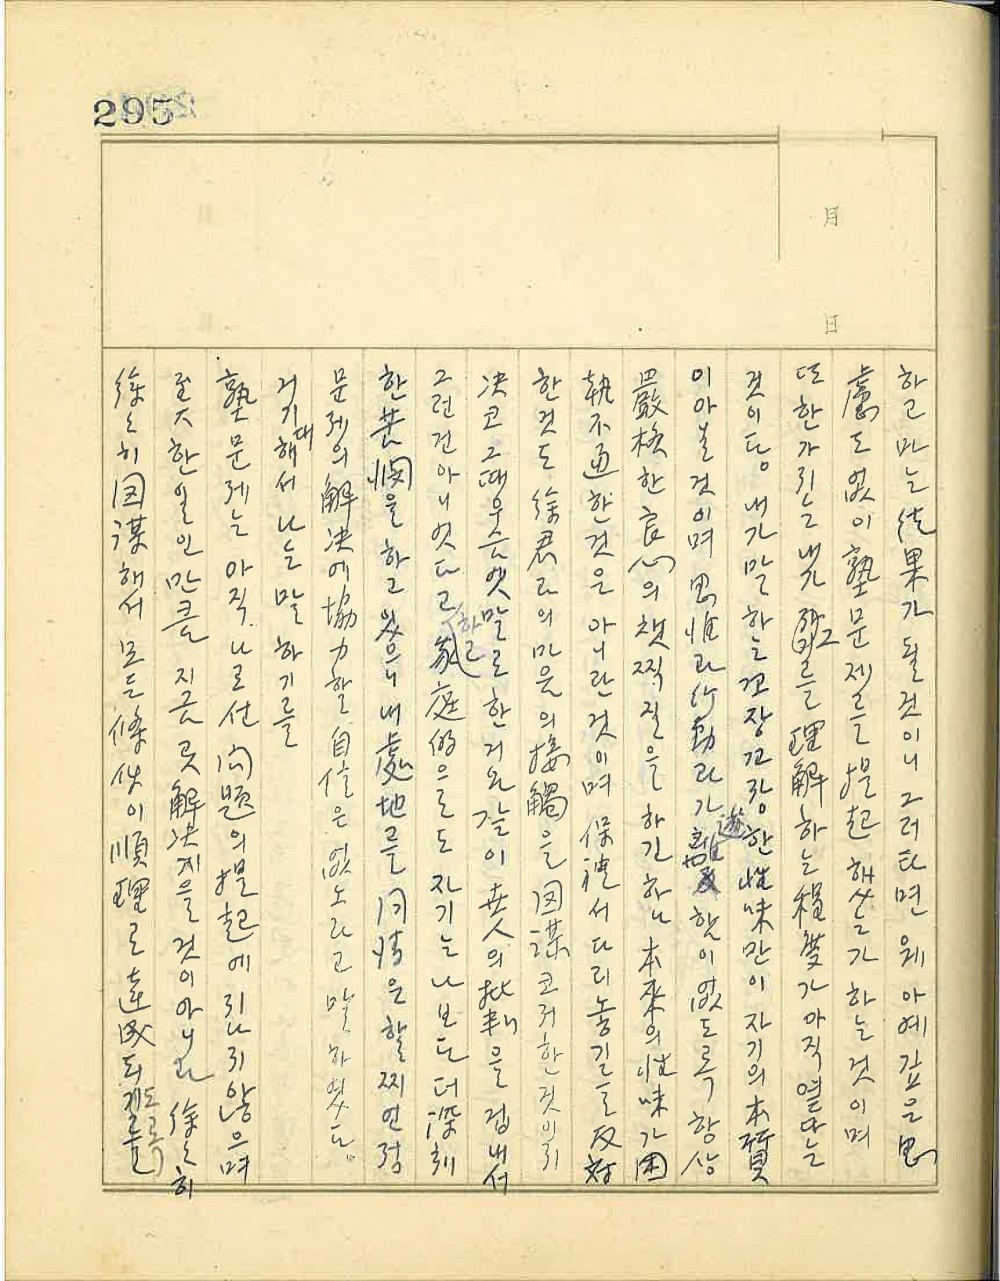 295
月
日
하고 마는 結果가 될것이니 그러타면 웨 아예 깊은 思
慮도 없이 塾문제를 提起했는가 하는 것이며
또한가지는 내가 理解하는 程度가 아직 옅다는
것이다. 내가 말하는 꼬장꼬장한 性味만이 자기의 本質
이아닐 것이며 思惟과 行動과가 遊離 함이 없도록 항상
嚴格한 良心의 챗찍질을 하긴하나 本來의 性味가 固
執不通한것은 아니란 것이며 保禮서 다리놓긴를 反対
한것도 徐君과의 마음의 接觸을 図謀코저한것이지
決코 그때우슴엣말로 한거와같이 世人의 批判을 겁내서
그런건아니엿다고 하고 家庭的으로도 자기는 나보다 더 深刻
한 苦悶을 하고 있으니 내 處地를 同情은 할찌언정
문제의 解決에 協力할 自信은 없노라고 말하였다.
거기대해서 나는 말하기를
塾문제는 아직 나로선 問題의 提起에 지나지않으며
至大한일인만큼 지금 곳 解決지을것이아니라 徐々히
徐々히 図謀해서 모든 條件이 順理로 達成되도록